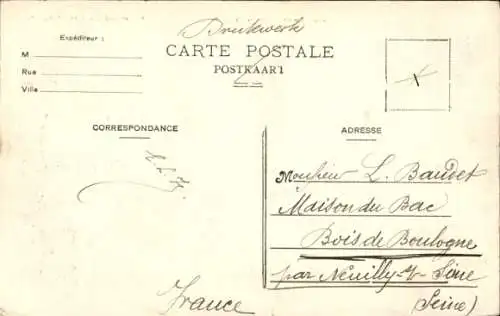 Drukwerk
Expéditeur :
CARTE POSTALE
M
POSTKAART
Rue
Ville
CORRESPONDANCE
ADRESSE
Monsieur L. Baudet
Maison du Bac
Bois de Boulogne
par Neuilly s/ Seine
France
(Seine)